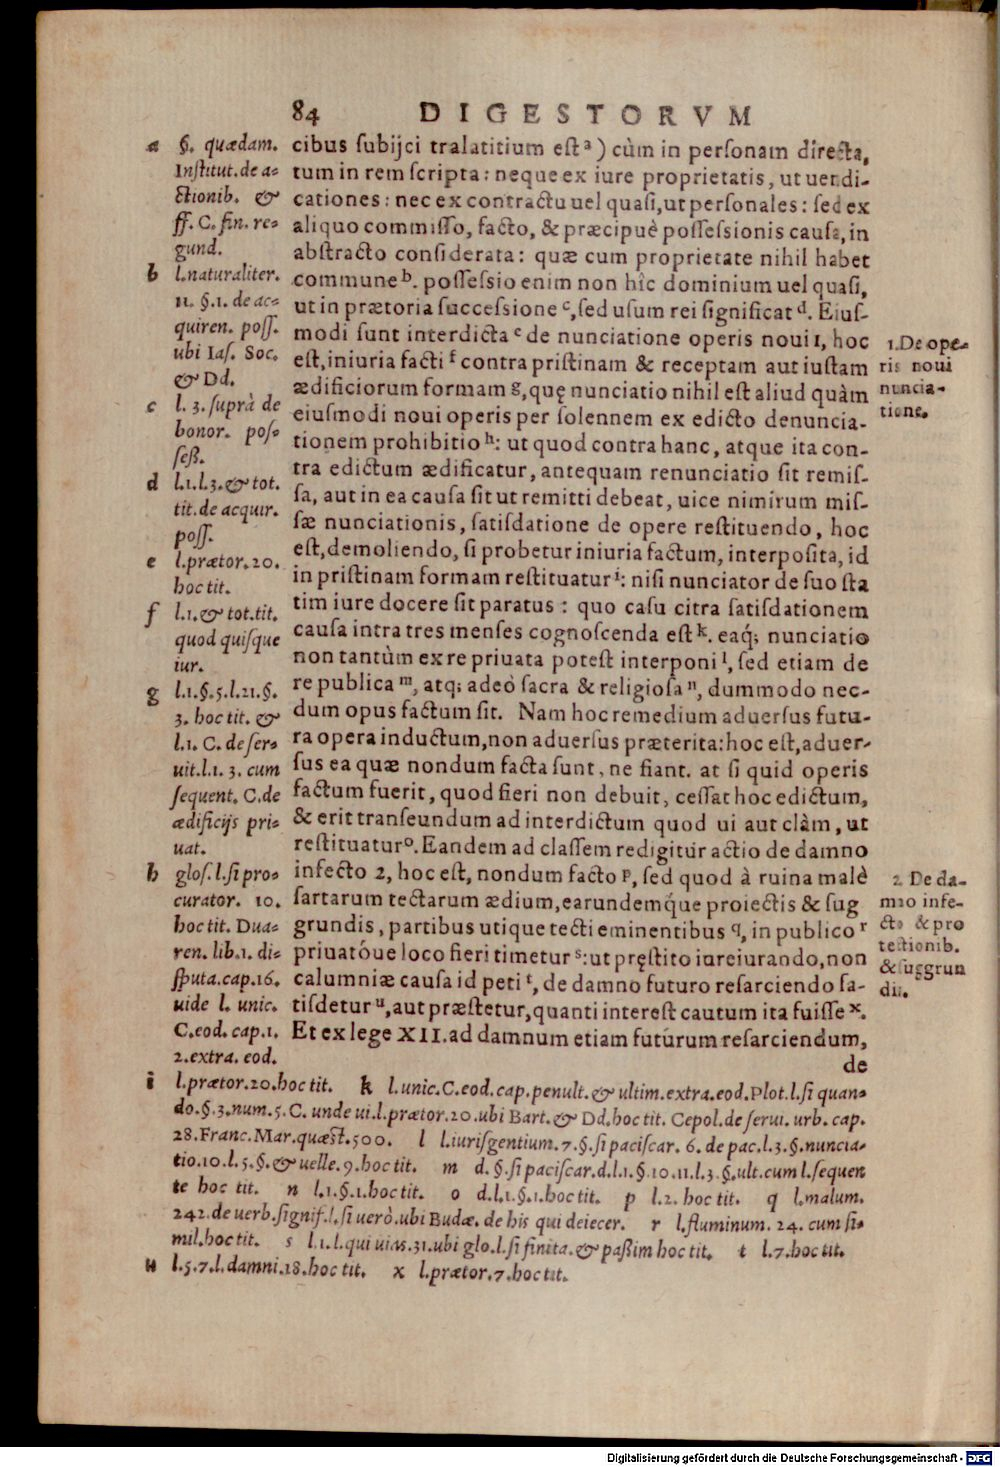 84 DIGESTORVM
cibus subijci tralatitium est a) cùm in personam directa,
tum in rem scripta: neque ex iure proprietatis, ut uendi-
cationes: nec ex contractu uel quasi, ut personales: sed ex
aliquo commisso, facto, & præcipuè possessionis causa, in
abstracto considerata: quæ cum proprietate nihil habet
commune b. possessio enim non hîc dominium uel quasi,
ut in prætoria successione c, sed usum rei significat d. Eius-
modi sunt interdicta e de nunciatione operis noui 1, hoc
est, iniuria facti f contra pristinam & receptam aut iustam
ædificiorum formam g, quę nunciatio nihil est aliud quàm
eiusmodi noui operis per solennem ex edicto denuncia-
tionem prohibitio h: ut quod contra hanc, atque ita con-
tra edictum ædificatur, antequam renunciatio sit remis-
sa, aut in ea causa sit ut remitti debeat, uice nimirum mis-
sæ nunciationis, satisdatione de opere restituendo, hoc
est, demoliendo, si probetur iniuria factum, interposita, id
in pristinam formam restituatur i: nisi nunciator de suo sta
tim iure docere sit paratus: quo casu citra satisdationem
causa intra tres menses cognoscenda est k. eaq; nunciatio
non tantùm ex re priuata potest interponi l, sed etiam de
re publica m, atq; adeò sacra & religiosa n, dummodo nec-
dum opus factum sit. Nam hoc remedium aduersus futu-
ra opera inductum, non aduersus præterita: hoc est, aduer-
sus ea quæ nondum facta sunt, ne fiant. at si quid operis
factum fuerit, quod fieri non debuit, cessat hoc edictum,
& erit transeundum ad interdictum quod ui aut clàm, ut
restituatur o. Eandem ad classem redigitur actio de damno
infecto 2, hoc est, nondum facto p, sed quod à ruina malè
sartarum tectarum ædium, earundemque proiectis & sug
grundis, partibus utique tecti eminentibus q, in publico r
priuatóue loco fieri timetur s: ut pręstito iureiurando, non
calumniæ causa id peti t, de damno futuro resarciendo sa-
tisdetur u, aut præstetur, quanti interest cautum ita fuisse x.
Et ex lege XII. ad damnum etiam futurum resarciendum,
de
a §. quædam.
Institut. de a-
ctionib. &
ff. C. fin. re-
gund.
b l. naturaliter.
11. §. 1. de ac-
quiren. poss.
ubi Ias. Soc.
& Dd.
c l. 3. suprà de
bonor. pos-
seß.
d l. 1. l. 3. & tot.
tit. de acquir.
poss.
e l. prætor. 20.
hoc tit.
f l. 1. & tot. tit.
quod quisque
iur.
g l. 1. §. 5. l. 21. §.
3. hoc tit. &
l. 1. C. de ser-
uit. l. 1. 3. cum
sequent. C. de
ædificijs pri-
uat.
h glos. l. si pro-
curator. 10.
hoc tit. Dua-
ren. lib. 1. di-
sputa. cap. 16.
uide l. unic.
C. eod. cap. 1.
2. extra. eod.
1. De ope-
ris noui
nuncia-
tione.
2 De da-
mno infe-
cto & pro
tectionib.
& suggrun
diis.
i l. prætor. 20. hoc tit. k l. unic. C. eod. cap. penult. & ultim. extra. eod. Plot. l. si quan-
do. §. 3. num. 5. C. unde ui. l. prætor. 20. ubi Bart. & Dd. hoc tit. Cepol. de serui. urb. cap.
28. Franc. Mar. quæst. 500. l l. iurisgentium. 7. §. si paciscar. 6. de pac. l. 3. §. nuncia-
tio. 10. l. 5. §. & uelle. 9. hoc tit. m d. §. si paciscar. d. l. 1. §. 10. 11. l. 3. §. ult. cum l. sequen
te hoc tit. n l. 1. §. 1. hoc tit. o d. l. 1. §. 1. hoc tit. p l. 2. hoc tit. q l. malum.
242. de uerb. signif. l. si uerò. ubi Budæ. de his qui deiecer. r l. fluminum. 24. cum si-
mil. hoc tit. s l. 1. l. qui uias. 31. ubi glo. l. si finita. & paßim hoc tit. t l. 7. hoc tit.
u l. 5. 7. l. damni. 18. hoc tit. x l. prætor. 7. hoc tit.
Digitalisierung gefördert durch die Deutsche Forschungsgemeinschaft - DFG